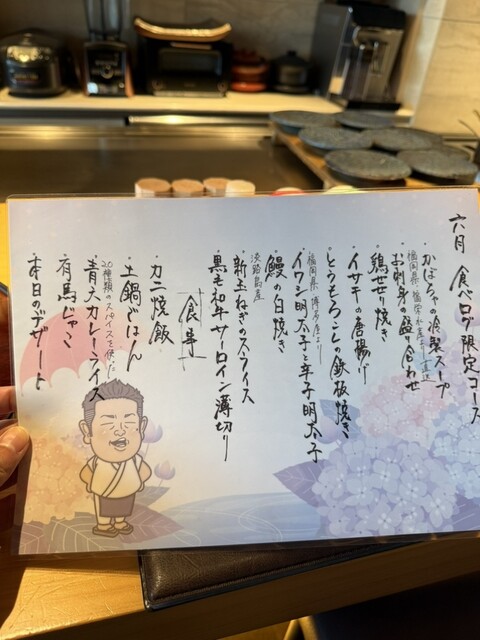 六月 食べログ限定コース
・かぼちゃの冷製スープ
福岡県 福栄水産より直送
・お刺身の盛り合わせ
・鶏せり焼き
・イサキの唐揚げ
・とうもろこしの鉄板焼き
福岡県 博多屋より
・イワシ明太子と辛子明太子
・鰻の白焼き
淡路島産
・新玉ねぎのスライス
・黒毛和牛サーロイン薄切り
食事
・カニ焼飯
・土鍋ごはん
20種類のスパイスを使った
・青大カレーライス
・有馬じゃこ
・本日のデザート